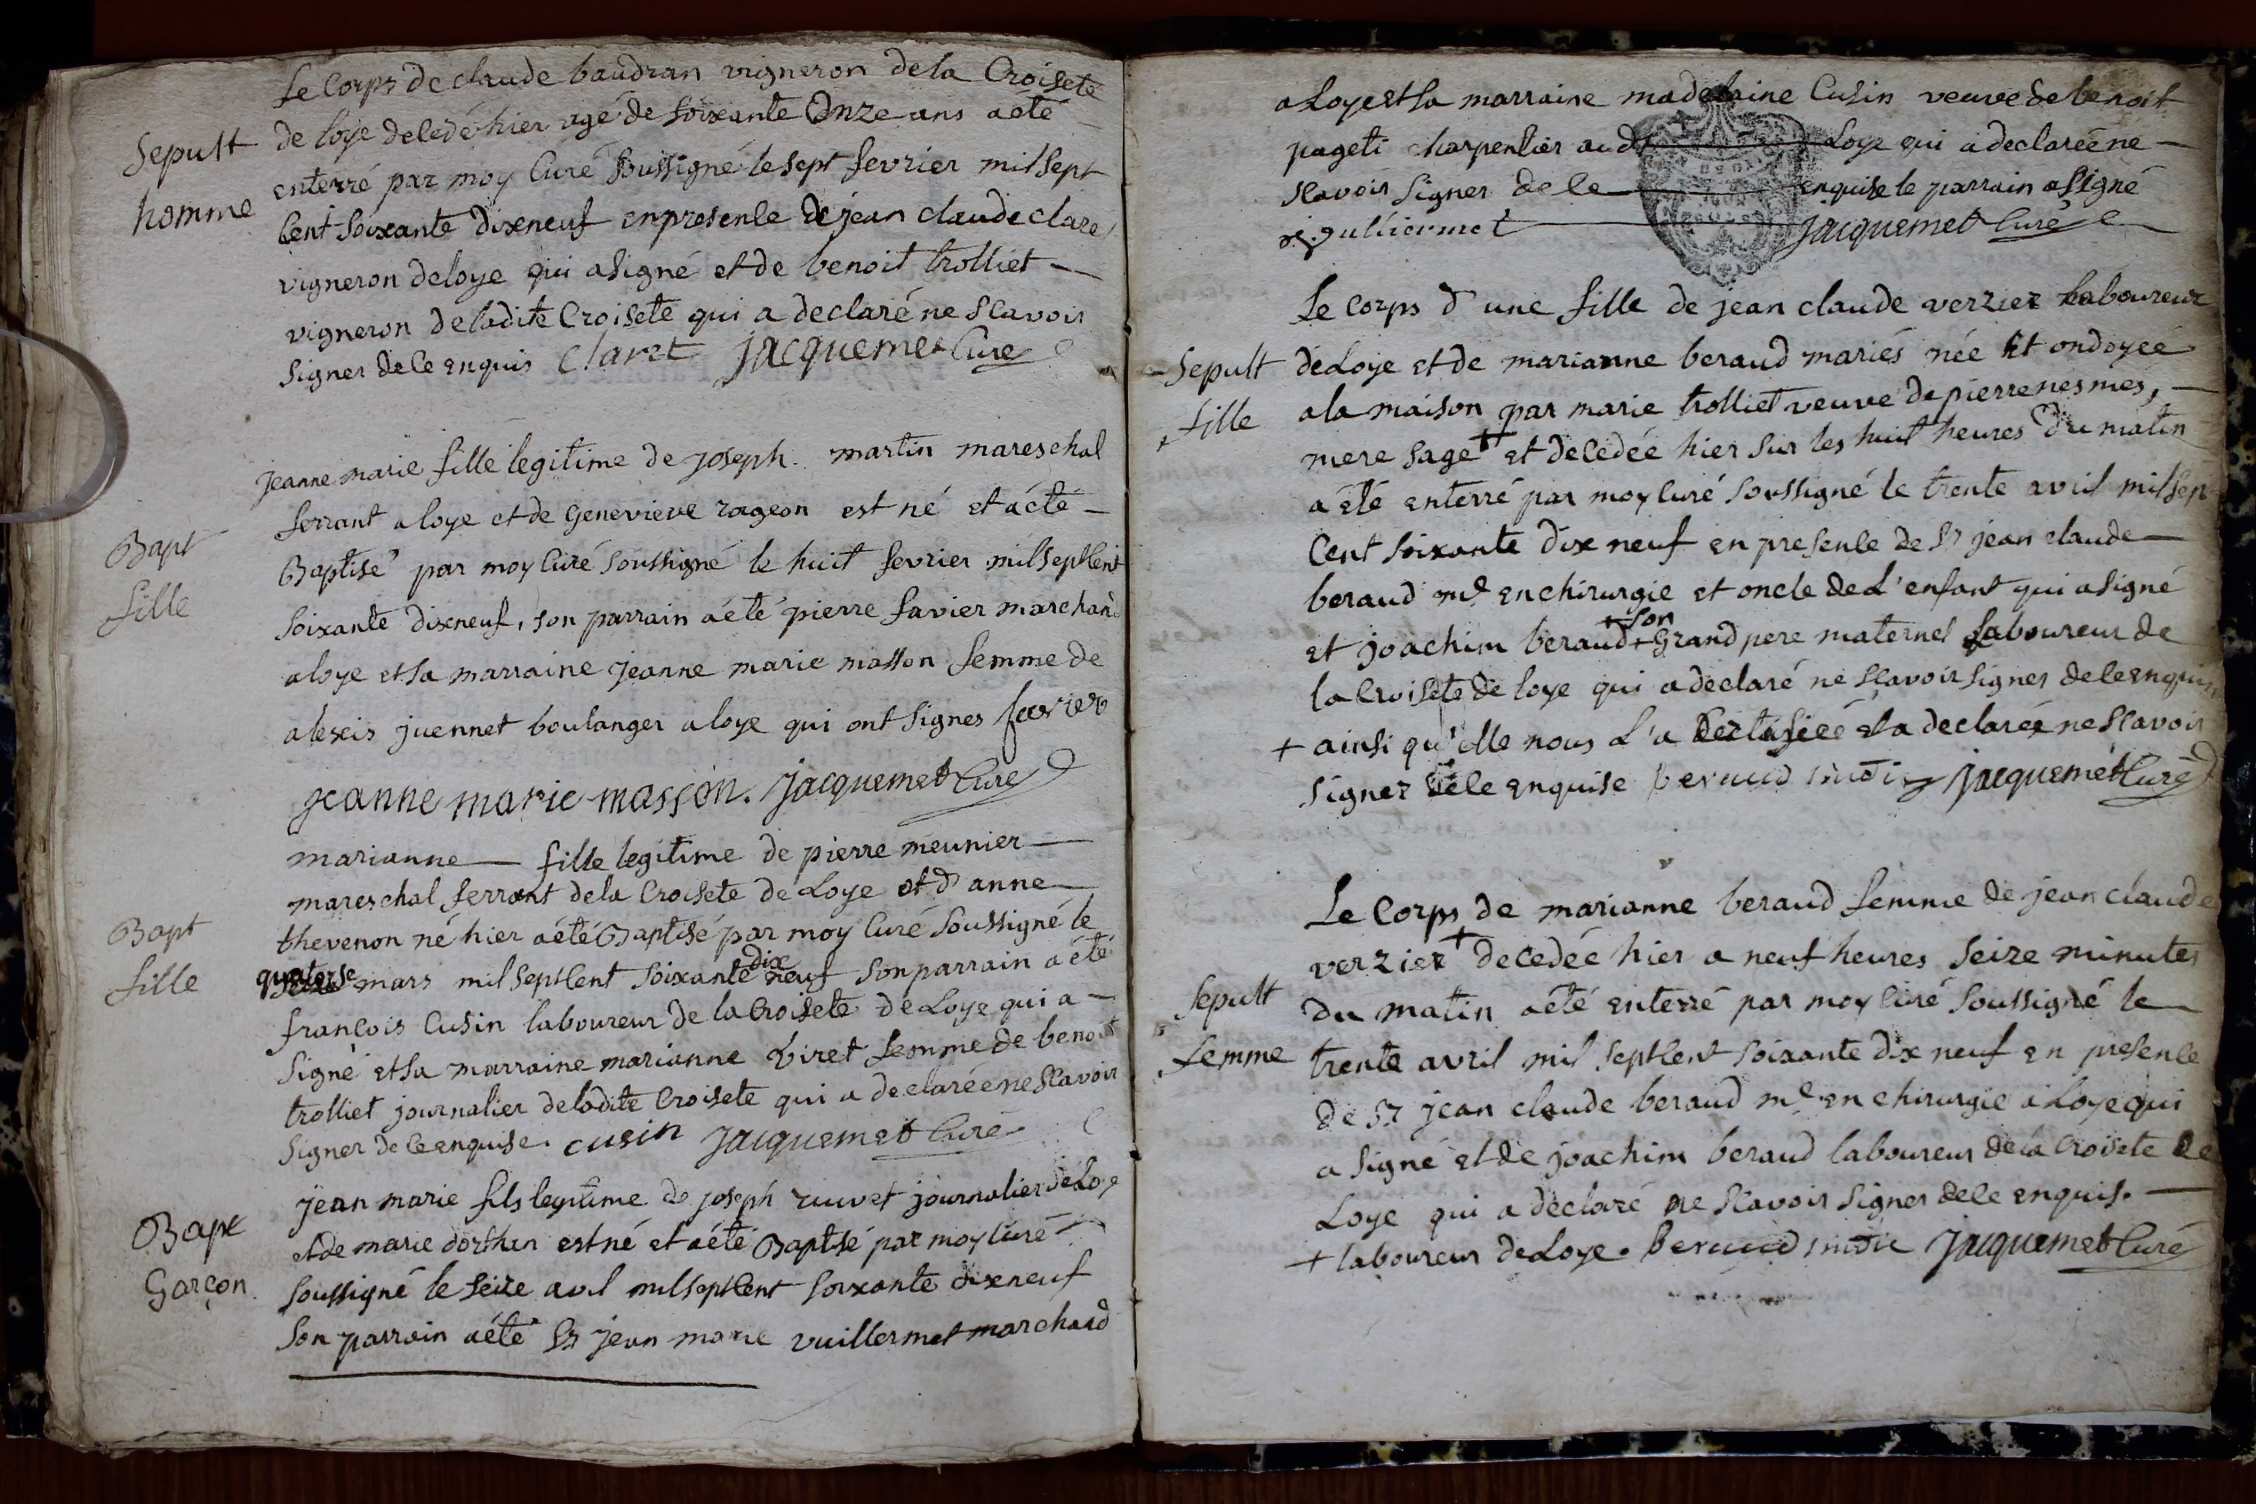 Le Corps de claude baudran vigneron dela Croisete
Sepult
homme
de loye decedé hier agé de soixante Onze ans a eté
enterré par moy Curé soussigné le sept fevrier mil sept
Cent soixante dixneuf en presence de jean claude claret
vigneron de loye qui a signé et de benoit trolliet
vigneron de ladite Croisete qui a declaré ne scavoir
signer de ce enquis Claret jacquemet Curé
jeanne marie fille legitime de joseph martin mareschal
Bapt
fille
ferrant a loye et de Genevieve rageon est né et a été
Baptisé par moy Curé soussigné le huit fevrier mil sept Cent
soixante dixneuf, son parrain a été pierre favier marchand
a loye et sa marraine jeanne marie masson femme de
alexis juennet boulanger a loye qui ont signes favier
jeanne marie masson. jacquemet Curé
marianne fille legitime de pierre meunier
mareschal ferrant dela Croisete de Loye et d'anne
Bapt
fille
thevenon né hier a été Baptisé par moy Curé soussigné le
quatorse mars mil sept Cent soixante dix neuf son parrain a été
françois Cusin laboureur de la Croisete de Loye qui a
signé et sa marraine marianne biret femme de benoit
trolliet journalier de ladite Croisete qui a declarée ne scavoir
signer de ce enquise. cusin jacquemet Curé
jean marie fils legitime de joseph ruivet journalier de Loye
Bapt
Garçon
et de marie dorthen est né et a été Baptisé par moy Curé
soussigné le seize avil mil sept Cent soixante dixneuf
son parrain a été Sr jean marie vuillermet marchand
a Loye et sa marraine madelaine Cusin veuve de benoit
pageti charpentier audt Loye qui a declarée ne
scavoir signer de ce enquise le parrain a signé
jacquemet Curé
Le Corps d'une fille de jean claude verzier laboureur
Sepult
fille
de Loye et de marianne beraud mariés née et ondoyée
a la maison par marie trolliet veuve de pierre nesmes,
mere sage + et decedée hier sur les huit heures du matin
a été enterré par moy Curé soussigné le trente avril mil sept
Cent soixante dix neuf en presence de Sr jean claude
beraud me en chirurgie et oncle de L'enfant qui a signé
et joachim beraud + son Grand pere maternel laboureur de
la Croisete de loye qui a declaré ne sçavoir signer de ce enquis
+ ainsi qu'elle nous L'a Certifiée et a declarée ne scavoir
signer de ce enquise beraud jacquemet Curé
Le Corps de marianne beraud femme de jean claude
Sepult
femme
verzier + decedée hier a neuf heures seize minutes
du matin a été enterré par moy Curé soussigné le
trente avril mil sept Cent soixante dix neuf en presence
de Sr jean claude beraud me en chirurgie a Loye qui
a signé et de joachim beraud laboureur de la Croisete de
Loye qui a declaré ne scavoir signer de ce enquis.
+ laboureur de Loye. beraud jacquemet Curé